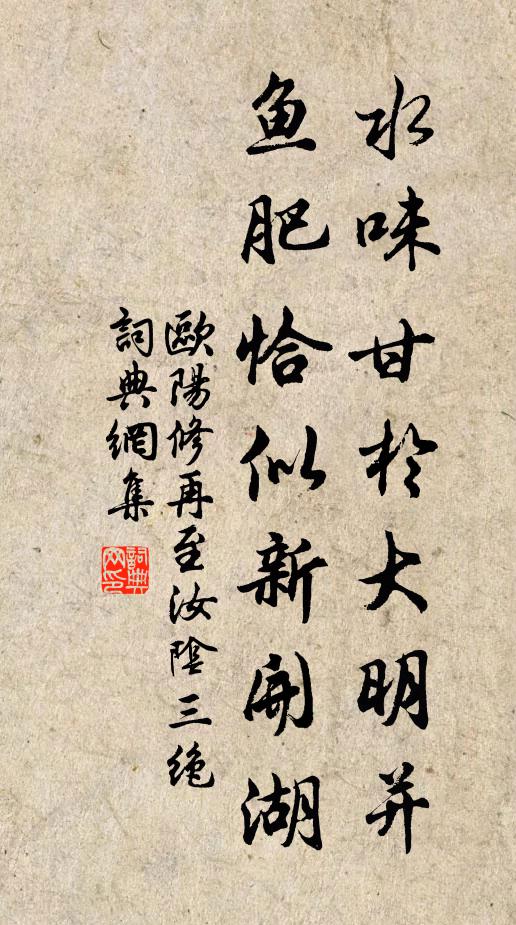 水味甘於大明并
鱼肥恰似新開湖
歐陽修再至汝陰三绝
詞典網集
詞典网印